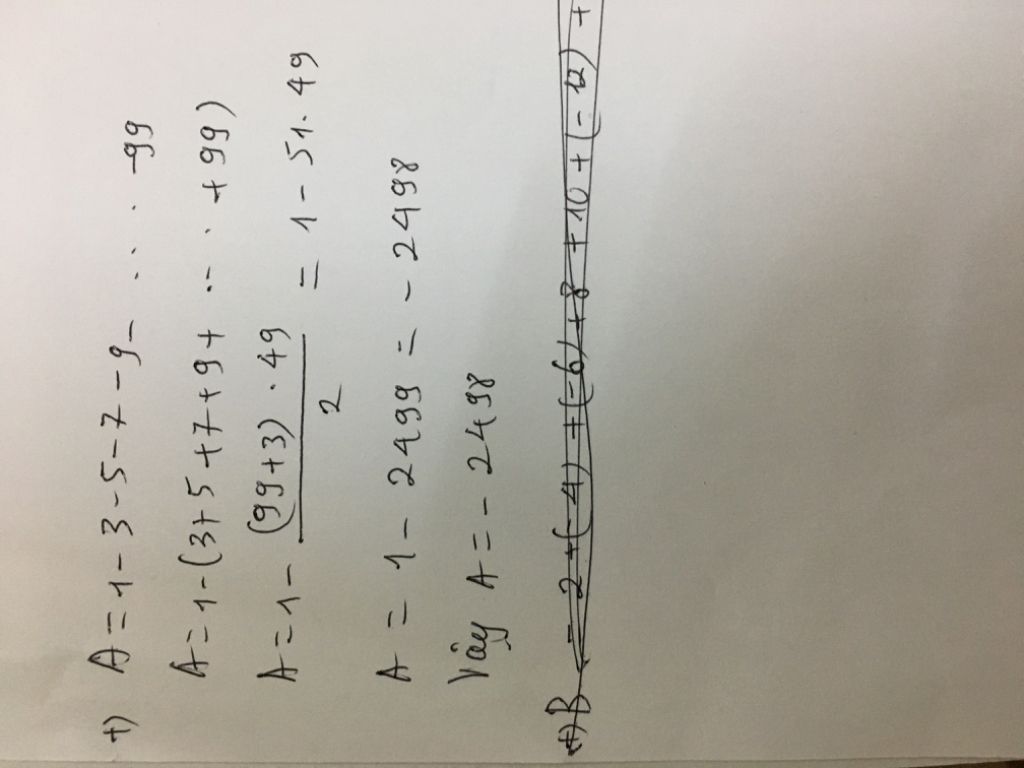 +) A = 1 - 3 - 5 - 7 - 9 - ... - 99
A = 1 - (3 + 5 + 7 + 9 + ... + 99)
A = 1 - \frac{(99+3) . 49}{2} = 1 - 51 . 49
A = 1 - 2499 = - 2498
Vậy A = - 2498
+) B = 2 + (-4) + (-6) + 8 + 10 + (-12) +